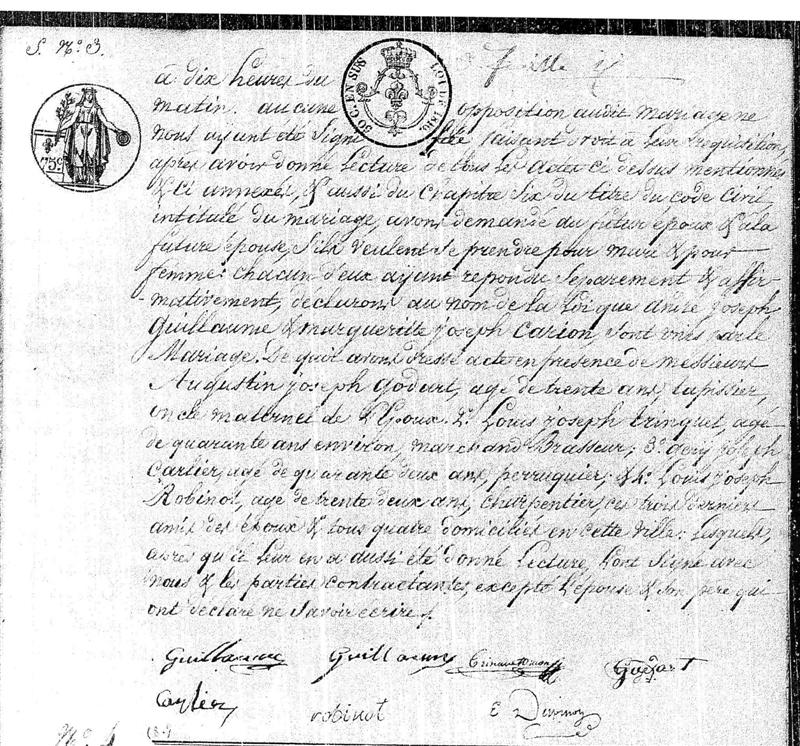 S. N.° 3.
50 C. EN SUS LOI DE 1816
75 c.
à dix heures du
matin. aucune opposition audit mariage ne
nous ayant été signifiée faisant droit à leur requisition,
après avoir donné Lecture de tous les actes ci dessus mentionnés
& ci annexés, & aussi du Chapitre Six du titre du code Civil,
intitulé du mariage, avons demandé au futur époux & à la
future épouse, S'ils veulent Se prendre pour mari & pour
femme: chacun d'eux ayant repondu Separement & affir
mativement, declarons au nom de la Loi que andré joseph
Guillaume & marguerite joseph Carion, Sont unis par le
Mariage. De quoi avons dressé acte en presence de messieurs
Augustin joseph Godart, agé de trente ans, tapissier,
oncle maternel de L'Epoux. 2.° Louis joseph trinquet, agé
de quarante ans environ, marchand Brasseur; 3.° gery joseph
Cartier, agé de quarante deux ans, perruquier; & 4.° Louis joseph
Robinot, agé de trente deux ans, Charpentier, ces trois derniers
amis des époux & tous quatre domiciliés en cette Ville: Lesquels,
après qu'il Leur en a aussi été donné Lecture, L'ont Signé avec
nous & les parties contractantes, excepté L'épouse & Son père qui
ont déclaré ne Savoir écrire.
Guillaume Guillaume Godart
Cartier robinot E
N.°